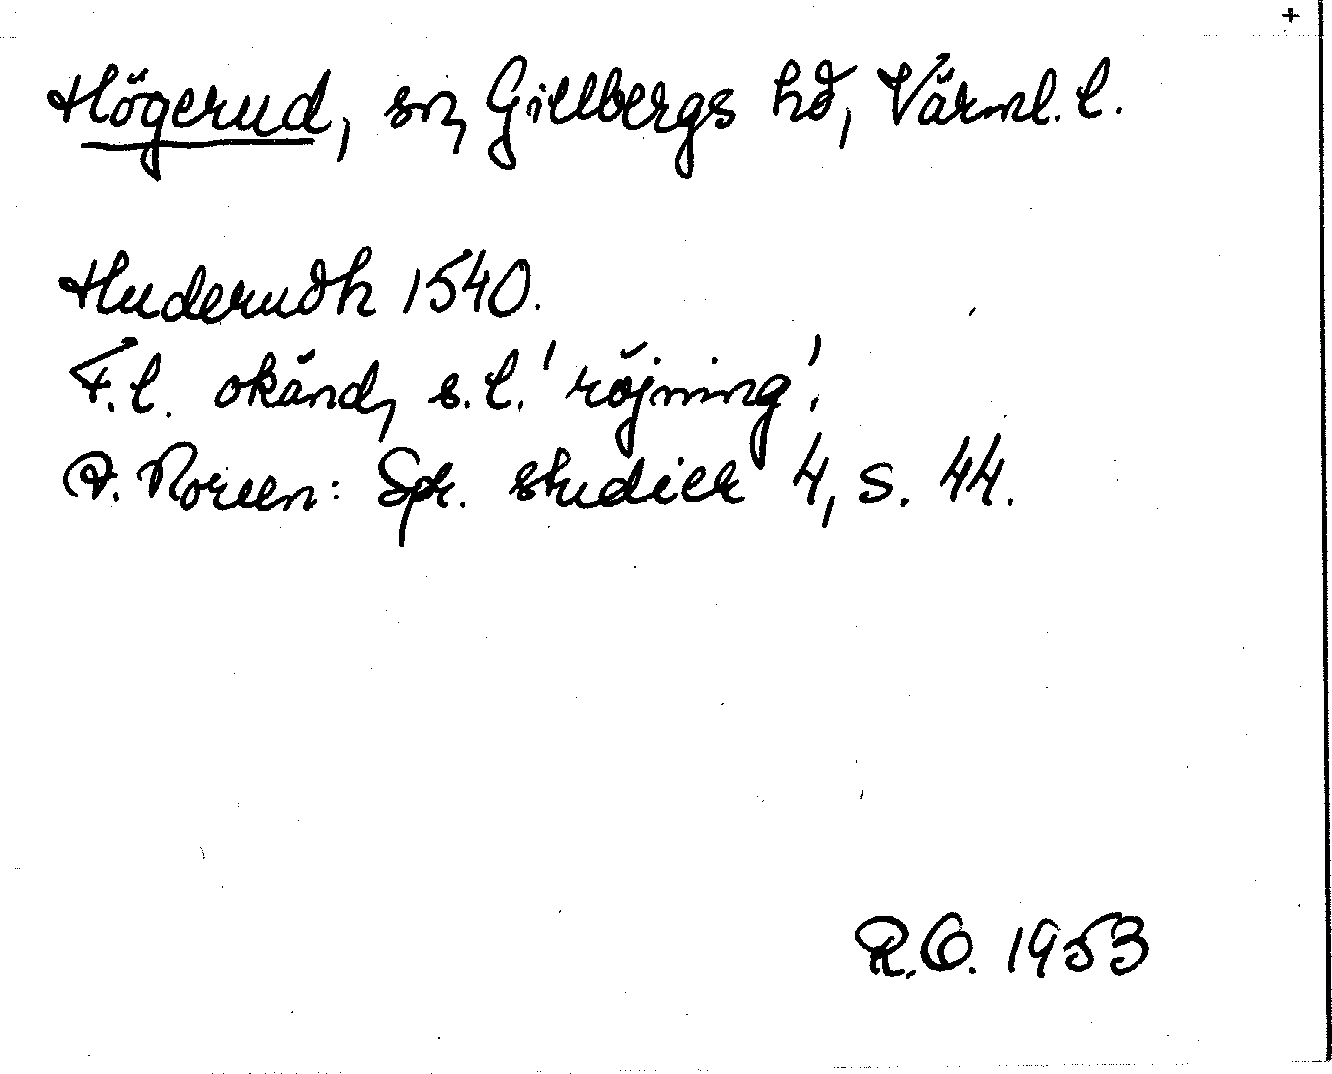 Högerud, sn, Gillbergs hd, Värml. l.
Huderudh 1540.
F.l. okänd, s.l. 'röjning'.
A. Noreen: Spr. studier 4, s. 44.
R.O. 1953